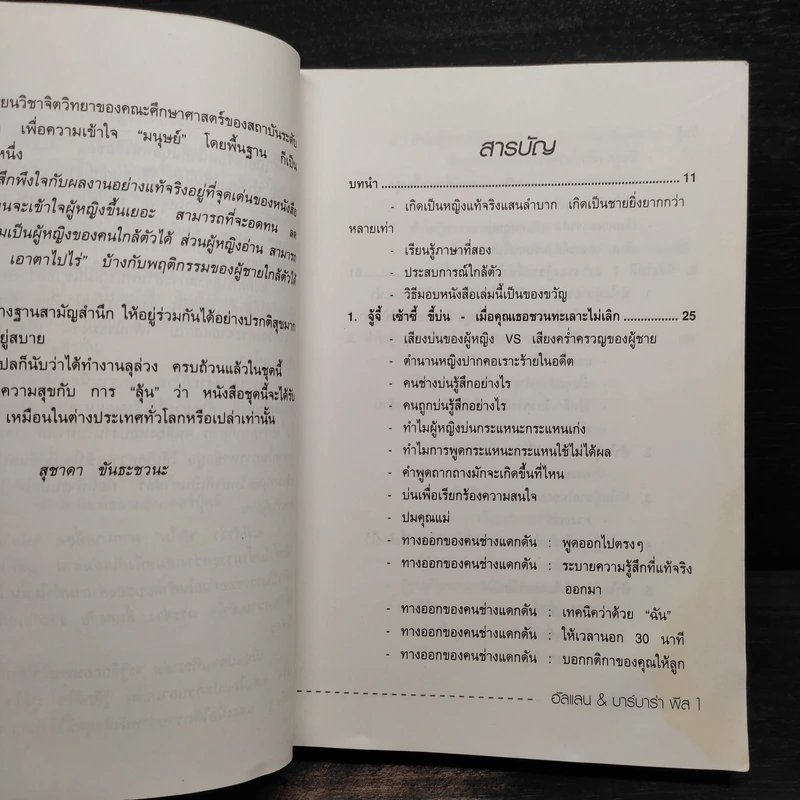 ยนวิชาจิตวิทยาของคณะศึกษาศาสตร์ของสถาบันระดับ
เพื่อความเข้าใจ “มนุษย์” โดยพื้นฐาน ก็เป็น
หนึ่ง
สึกพึงใจกับผลงานอย่างแท้จริงอยู่ที่จุดเด่นของหนังสือ
านจะเข้าใจผู้หญิงขึ้นเยอะ สามารถที่จะอดทน ลด
มเป็นผู้หญิงของคนใกล้ตัวได้ ส่วนผู้หญิงอ่าน สามารถ
เอาตาไปไร่” บ้างกับพฤติกรรมของผู้ชายใกล้ตัวได้
างฐานสามัญสำนึก ให้อยู่ร่วมกันได้อย่างปรกติสุขมาก
ยู่สบาย
ปลก็นับว่าได้ทำงานลุล่วง ครบถ้วนแล้วในชุดนี้
ความสุขกับ การ “ลุ้น” ว่า หนังสือชุดนี้จะได้รับ
เหมือนในต่างประเทศทั่วโลกหรือเปล่าเท่านั้น
สุชาดา ขันธะชวนะ
สารบัญ
บทนำ ........................................................................ 11
- เกิดเป็นหญิงแท้จริงแสนลำบาก เกิดเป็นชายยิ่งยากกว่า
หลายเท่า
- เรียนรู้ภาษาที่สอง
- ประสบการณ์ใกล้ตัว
- วิธีมอบหนังสือเล่มนี้เป็นของขวัญ
1. จู้จี้ เซ้าซี้ ขี้บ่น - เมื่อคุณเธอชวนทะเลาะไม่เลิก ............... 25
- เสียงบ่นของผู้หญิง VS เสียงคร่ำครวญของผู้ชาย
- ตำนานหญิงปากคอเราะร้ายในอดีต
- คนช่างบ่นรู้สึกอย่างไร
- คนถูกบ่นรู้สึกอย่างไร
- ทำไมผู้หญิงบ่นกระแหนะกระแหนเก่ง
- ทำไมการพูดกระแหนะกระแหนใช้ไม่ได้ผล
- คำพูดถากถางมักจะเกิดขึ้นที่ไหน
- บ่นเพื่อเรียกร้องความสนใจ
- ปมคุณแม่
- ทางออกของคนช่างแดกดัน : พูดออกไปตรงๆ
- ทางออกของคนช่างแดกดัน : ระบายความรู้สึกที่แท้จริง
ออกมา
- ทางออกของคนช่างแดกดัน : เทคนิคว่าด้วย “ฉัน”
- ทางออกของคนช่างแดกดัน : ให้เวลานอก 30 นาที
- ทางออกของคนช่างแดกดัน : บอกกติกาของคุณให้ลูก
อัลแลน & บาร์บาร่า พีส 1